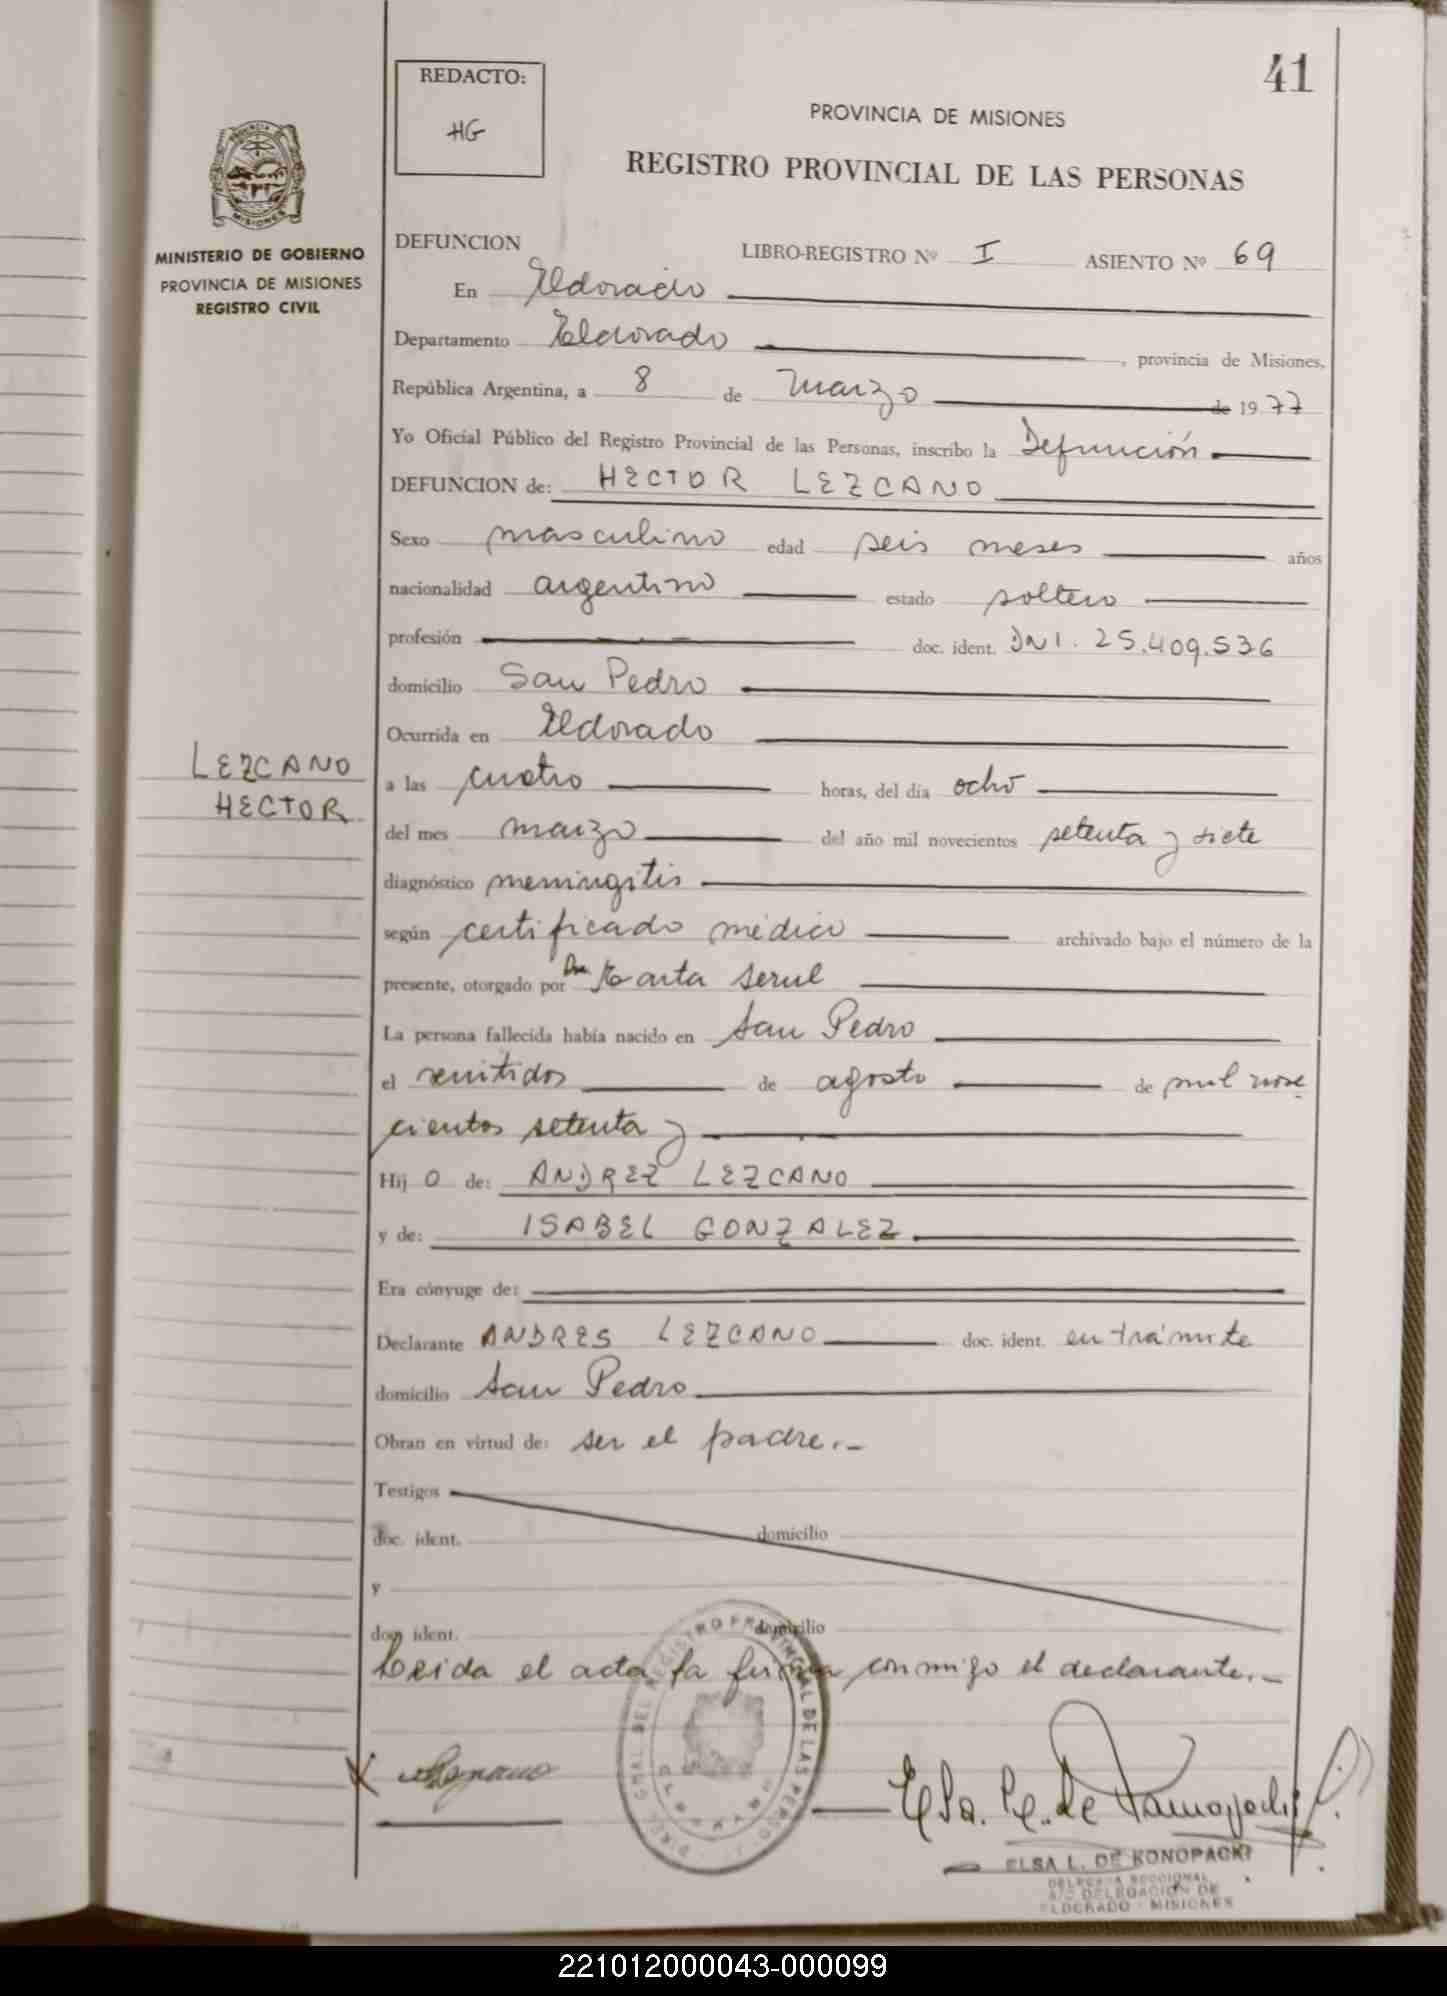 41
REDACTO:
HG
PROVINCIA DE MISIONES
REGISTRO PROVINCIAL DE LAS PERSONAS
MINISTERIO DE GOBIERNO
PROVINCIA DE MISIONES
REGISTRO CIVIL
DEFUNCION
LIBRO-REGISTRO Nº I ASIENTO Nº 69
En Eldorado
Departamento Eldorado, provincia de Misiones,
República Argentina, a 8 de Marzo de 1977
Yo Oficial Público del Registro Provincial de las Personas, inscribo la Defunción
DEFUNCION de: HECTOR LEZCANO
Sexo masculino edad seis meses años
nacionalidad argentino estado soltero
profesión doc. ident. DNI. 25.409.536
domicilio San Pedro
Ocurrida en Eldorado
LEZCANO
HECTOR
a las cuatro horas, del día ocho
del mes marzo del año mil novecientos setenta y siete
diagnóstico meningitis
según certificado médico archivado bajo el número de la
presente, otorgado por Dra. Marta Serul
La persona fallecida había nacido en San Pedro
el venitidos de agosto de mil nove
cientos setenta y
Hij o de: ANDREZ LEZCANO
y de: ISABEL GONZALEZ
Era cónyuge de:
Declarante ANDRES LEZCANO doc. ident. en trámite
domicilio San Pedro
Obran en virtud de: ser el padre.-
Testigos
doc. ident. domicilio
y
doc. ident. domicilio
Leida el acta la firma conmigo el declarante.-
ELSA L. DE KONOPACKI
DELEGADA SECCIONAL
A/C DELEGACION DE
ELDORADO - MISIONES
221012000043-000099